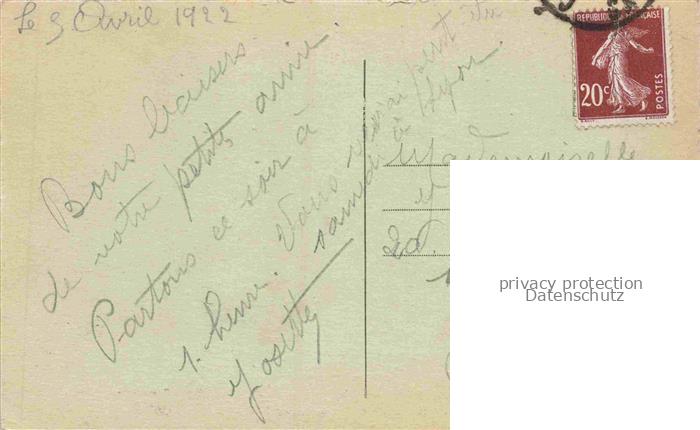 Le 3 Avril 1922
Bons baisers
de votre petite amie
Partons ce soir à
1. heure. Vous
samedi à Lyon
Yosette
et
REPUBLIQUE FRANÇAISE
20c
POSTES
privacy protection
Datenschutz